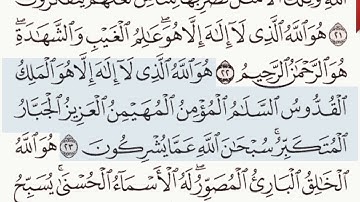 الله وتلك الأمثال نضربها للناس لعلهم يتفكرون
٢١ هُوَ ٱللَّهُ ٱلَّذِى لَآ إِلَٰهَ إِلَّا هُوَ ۖ عَٰلِمُ ٱلْغَيْبِ وَٱلشَّهَٰدَةِ ۖ
هُوَ ٱلرَّحْمَٰنُ ٱلرَّحِيمُ ٢٢ هُوَ ٱللَّهُ ٱلَّذِى لَآ إِلَٰهَ إِلَّا هُوَ ٱلْمَلِكُ
ٱلْقُدُّوسُ ٱلسَّلَٰمُ ٱلْمُؤْمِنُ ٱلْمُهَيْمِنُ ٱلْعَزِيزُ ٱلْجَبَّارُ
ٱلْمُتَكَبِّرُ ۚ سُبْحَٰنَ ٱللَّهِ عَمَّا يُشْرِكُونَ ٢٣ هُوَ ٱللَّهُ
ٱلْخَٰلِقُ ٱلْبَارِئُ ٱلْمُصَوِّرُ ۖ لَهُ ٱلْأَسْمَآءُ ٱلْحُسْنَىٰ ۚ يُسَبِّحُ